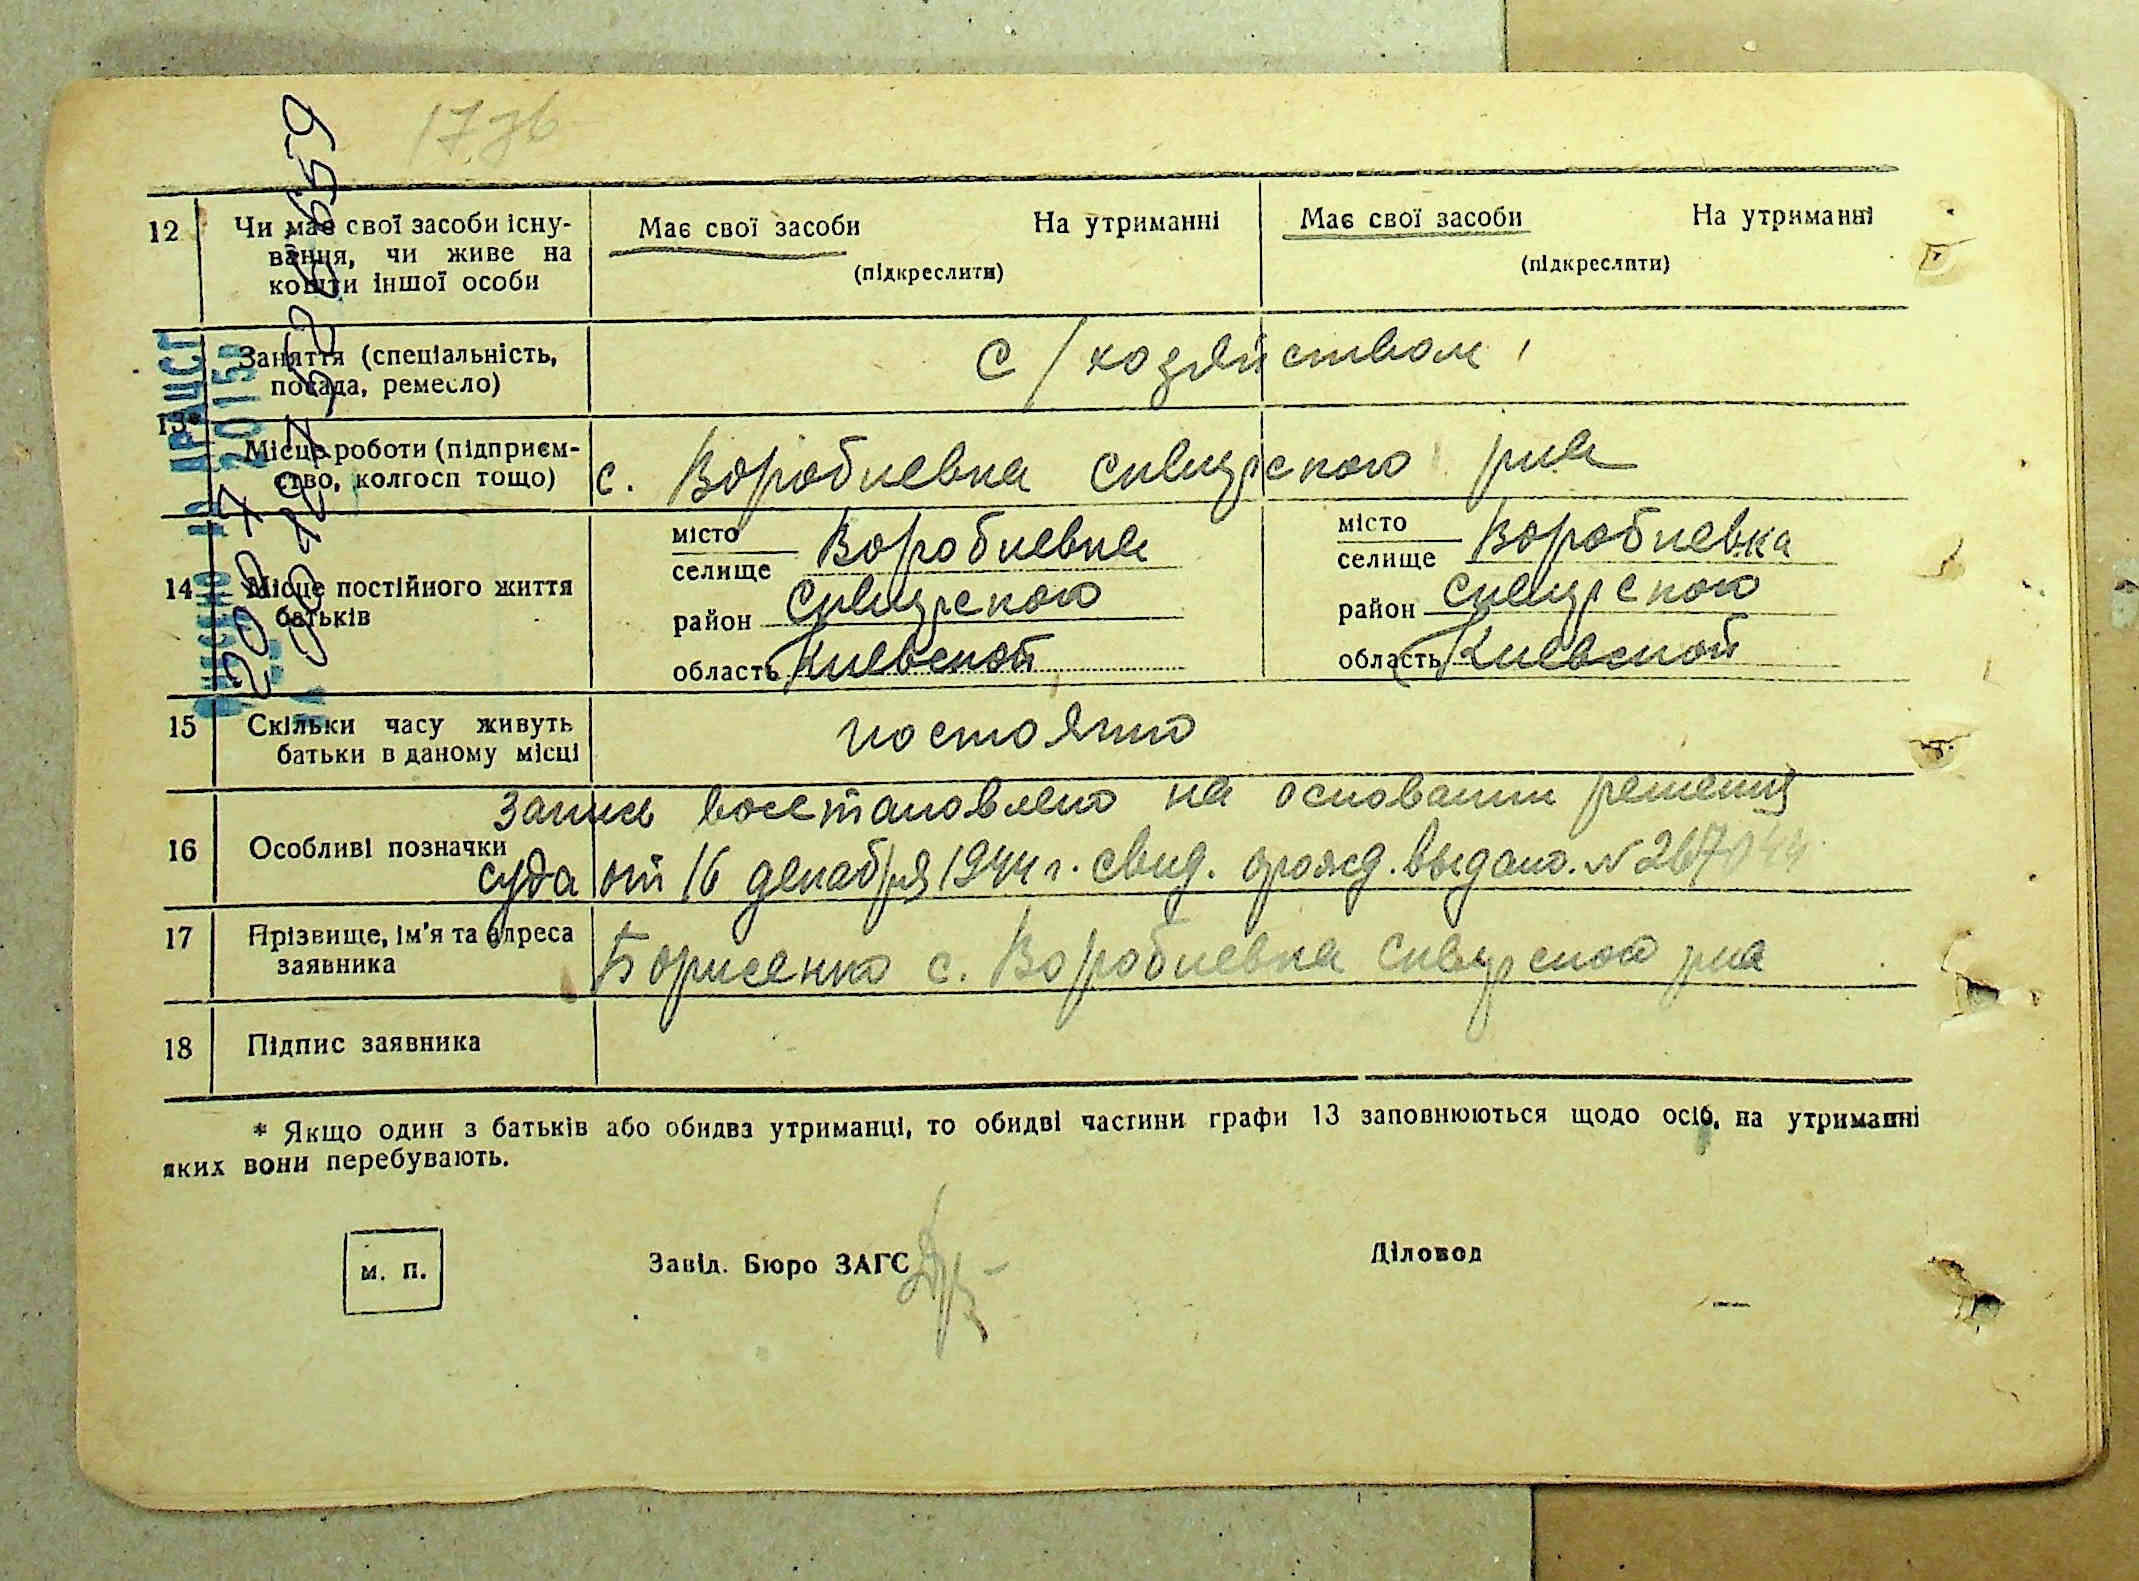 17 зв
12 Чи має свої засоби існу-
вання, чи живе на
кошти іншої особи
Має свої засоби На утриманні
(підкреслити)
Має свої засоби На утриманні
(підкреслити)
13*
Заняття (спеціальність,
посада, ремесло)
с/хозяйством
Місце роботи (підприєм-
ство, колгосп тощо)
с. Воробиевка сквирского рна
14 Місце постійного життя
батьків
місто
селище Воробиевка
район Сквирского
область Киевской
місто
селище Воробиевка
район Сквирского
область Киевской
15 Скільки часу живуть
батьки в даному місці
постоянно
16 Особливі позначки
запись восстановлено на основании решения
суда от 16 декабря 1944 г. свид. о рожд. выдано. № 267044
17 Прізвище, ім'я та адреса
заявника
Борисенко с. Воробиевка Сквирского рна
18 Підпис заявника
* Якщо один з батьків або обидва утриманці, то обидві частини графи 13 заповнюються щодо осіб, на утриманні
яких вони перебувають.
м. п.
Завід. Бюро ЗАГС
Діловод
ВНЕСЕНО ДО ДРАЦСГ
2015р